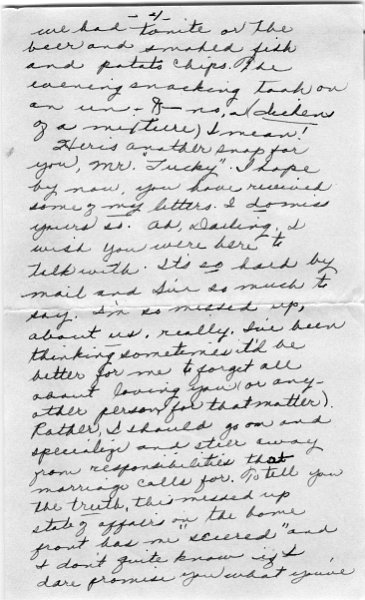 -4-
we had tonite or the
beer and smoked fish
and potato chips. The
evening snacking took on
an un - no, a (dicken
of a mixture) I mean!
Here's another snap for
you, Mr. "Lucky". I hope
by now, you have received
some of my letters. I do miss
yours so. Oh, Darling, I
wish you were here to
talk with. It's so hard by
mail and I've so much to
say. I'm so missed up,
about us, really. I've been
thinking sometimes it'd be
better for me to forget all
about loving you (or any-
other person for that matter).
Rather, I should go on and
specialize and still away
from responsibilities that
marriage calls for. To tell you
the truth, this missed up
state of affairs on "the home
front" has me "sceered" and
I don't quite know if I
dare promise you what you've